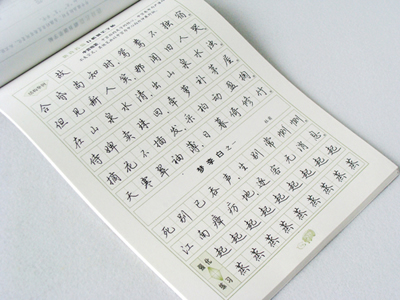 故
合昏尚知时,鸳鸯不独宿。
但见新人笑,那闻旧人哭。
在山泉水清,出山泉水浊。
侍婢卖珠回,牵萝补茅屋。
摘花不插发,采柏动盈掬。
天寒翠袖薄,日暮倚修竹。
梦李白之一
死别已吞声,生别常恻恻。
江南瘴疠地,逐客无消息。
强化练习
起起起起起起起起起起
蒸蒸蒸蒸蒸蒸蒸蒸蒸蒸